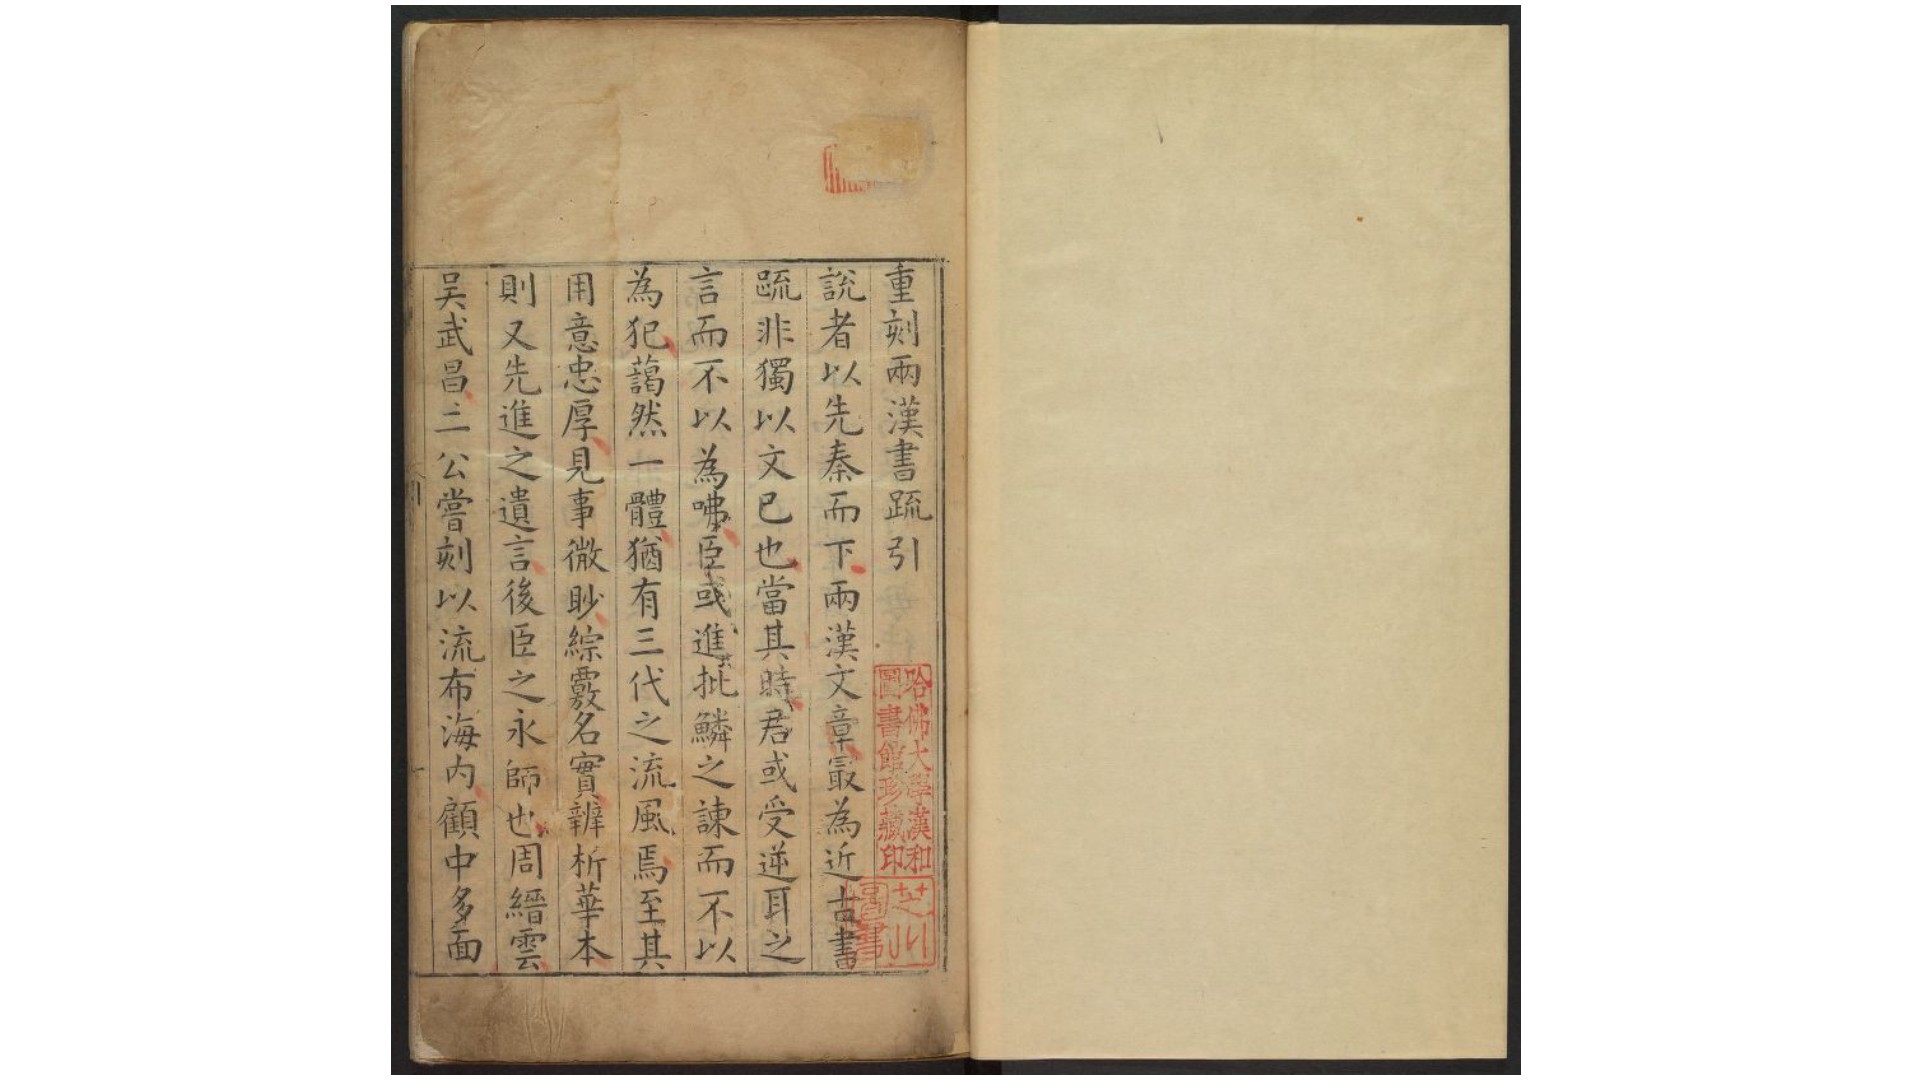 重刻兩漢書䟽引
說者以先秦而下兩漢文章最為近古書
䟽非獨以文已也當其時君或受逆耳之
言而不以為咈臣或進批鱗之諫而不以
為犯藹然一體猶有三代之流風焉至其
用意忠厚見事微眇綜覈名實辨析華本
則又先進之遺言後臣之永師也周縉雲
吴武昌二公嘗刻以流布海内顧中多面
哈佛大學漢和
圖書館珍藏印
芝川
圖書